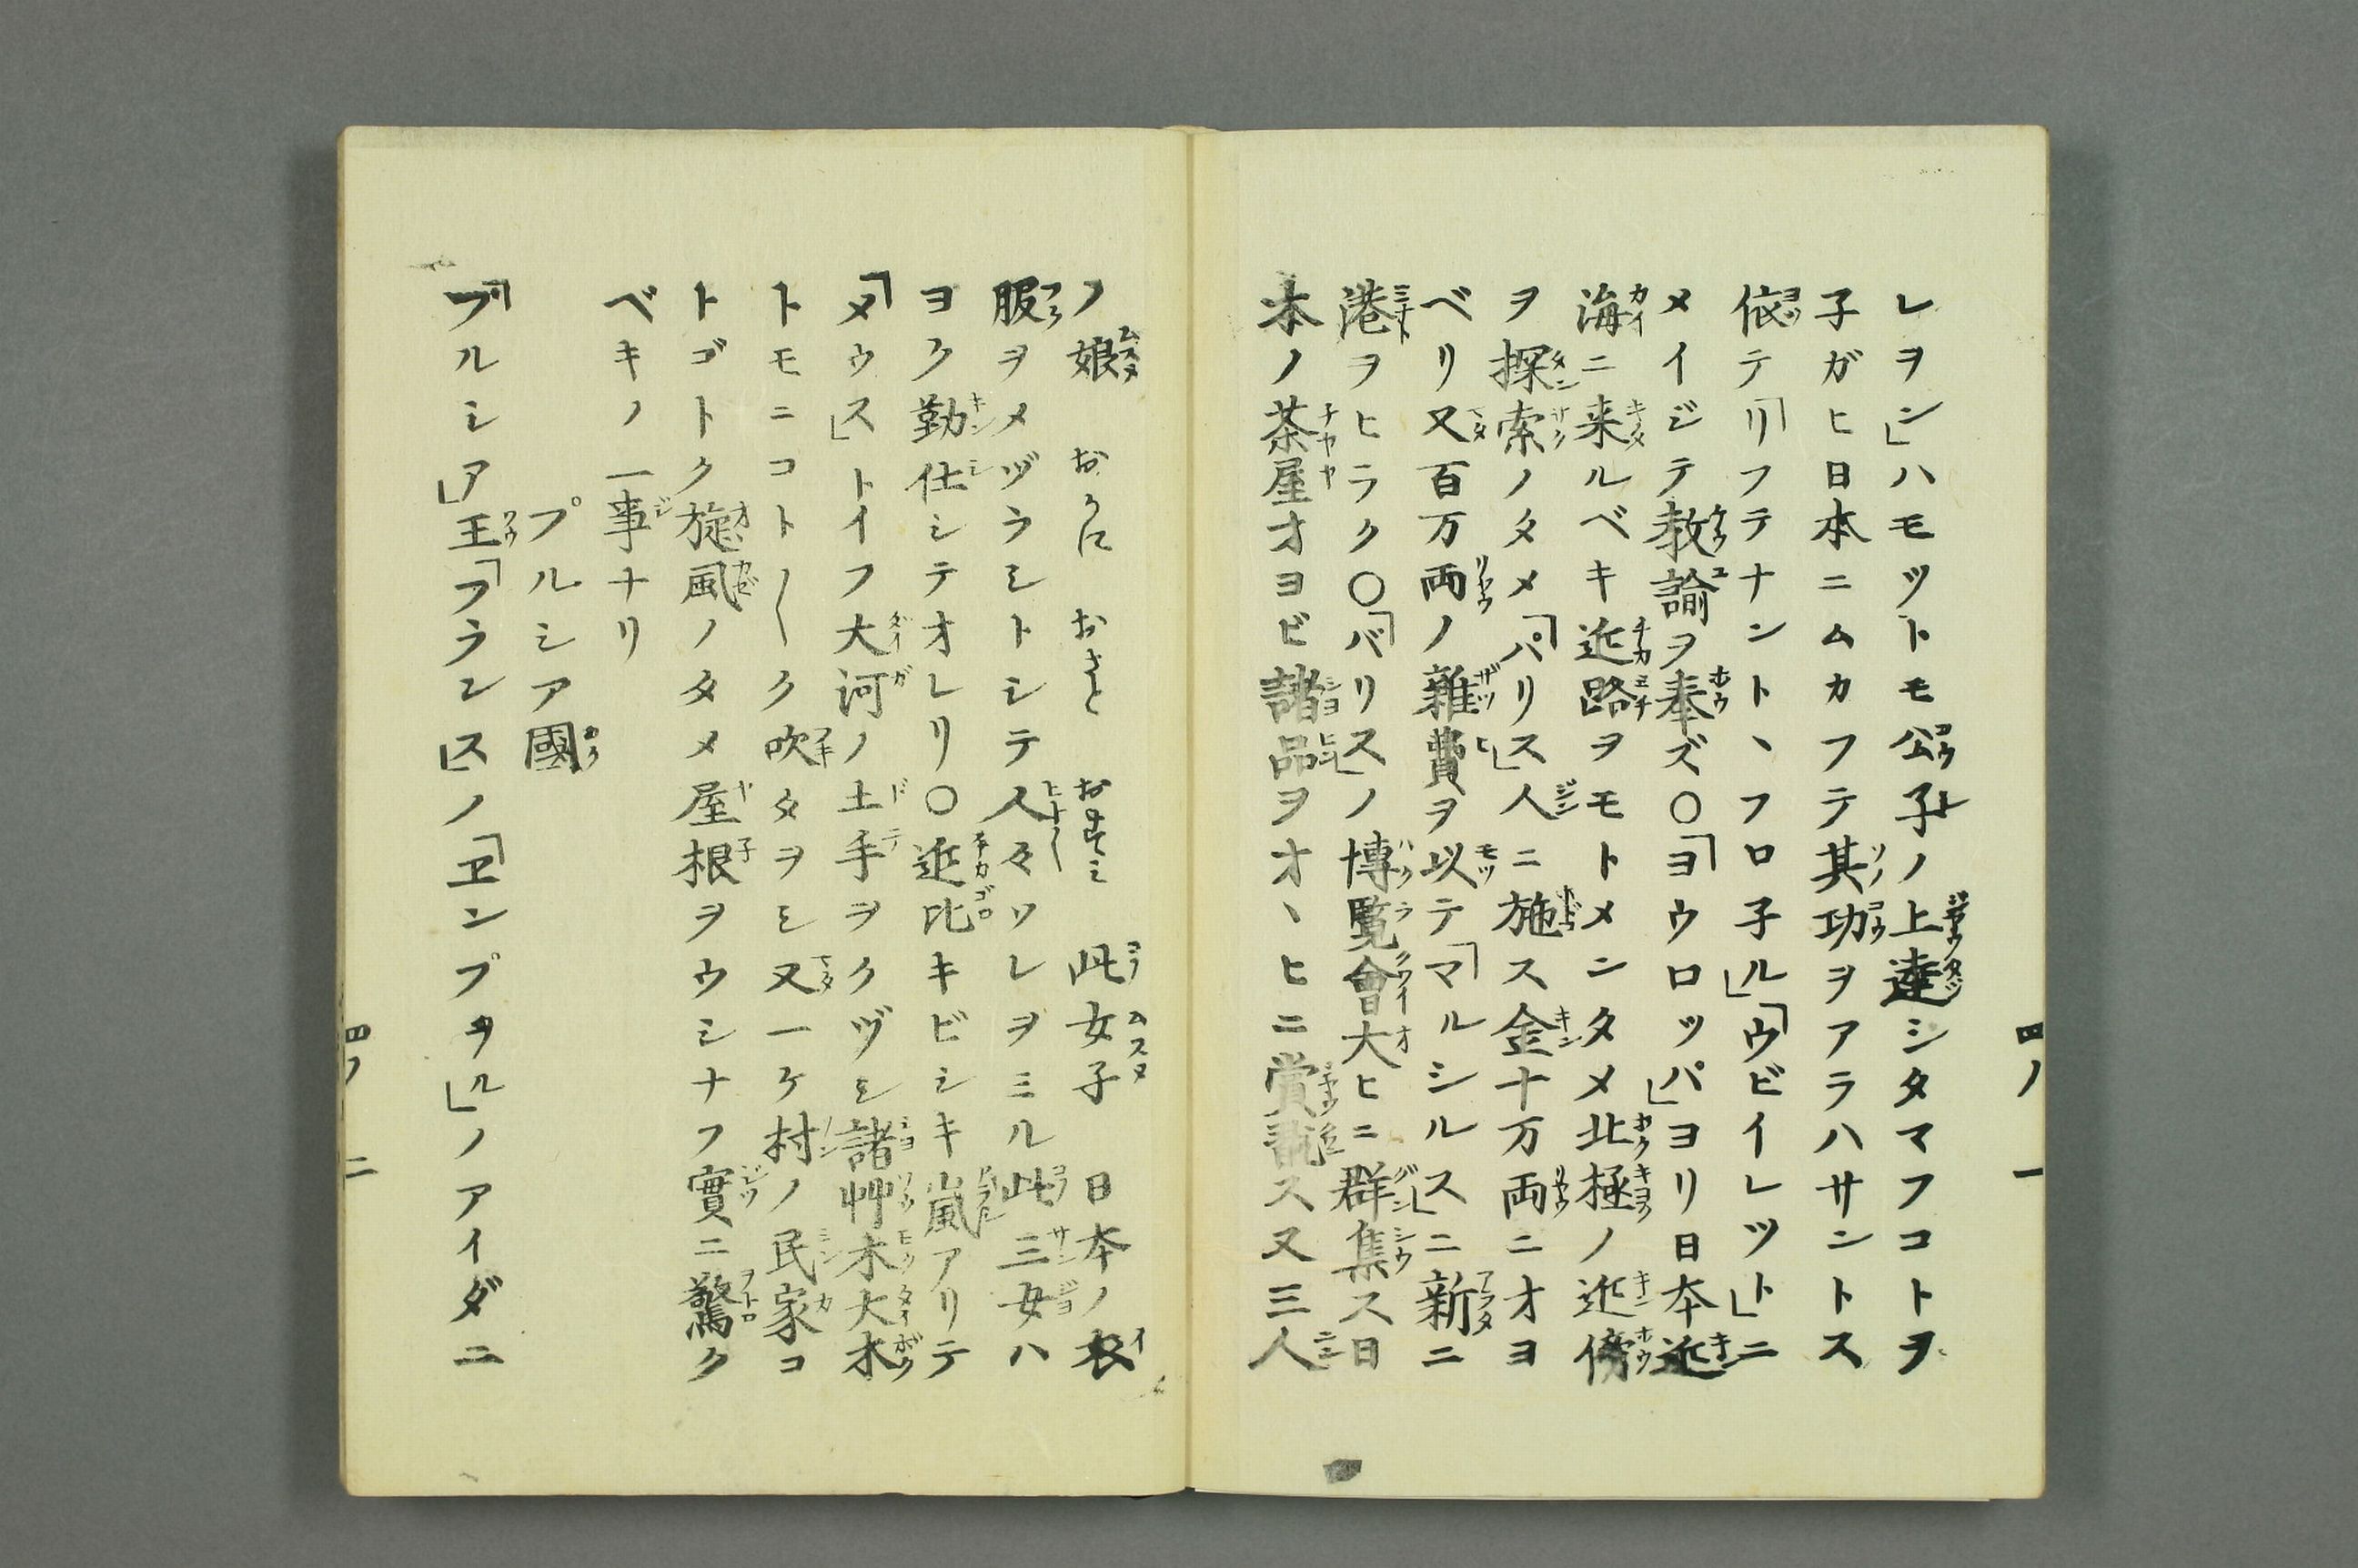 四ノ一
レヲン」ハモツトモ公子ノ上達シタマフコトヲ
子ガヒ日本ニムカフテ其功ヲアラハサントス
依テ「リフテナント、フロ子ル」「ウビイレツト」ニ
メイジテ教諭ヲ奉ズ○「ヨウロツパ」ヨリ日本近
海ニ来ルベキ近路ヲモトメンタメ北極ノ近傍
ヲ探索ノタメ「パリス」人ニ施ス金十万両ニオヨ
ベリ又百万両ノ雑費ヲ以テ「マルシルス」ニ新ニ
港ヲヒラク○「バリス」ノ博覧會大ヒニ群集ス日
本ノ茶屋オヨビ諸品ヲオヽヒニ賞翫ス又三人
ノ娘 おかに おさと おすみ 此女子 日本ノ衣
服ヲメヅラシトシテ人々ソレヲミル此三女ハ
ヨク勤仕シテオレリ○近比キビシキ嵐アリテ
「メウス」トイフ大河ノ土手ヲクヅシ諸艸木大木
トモニコト〱ク吹タヲシ又一ケ村ノ民家コ
トゴトク旋風ノタメ屋根ヲウシナフ實ニ驚ク
ベキノ一事ナリ
プルシア國
「プルシア」王「フランス」ノ「ヱンプヲル」ノアイダニ
四ノ二